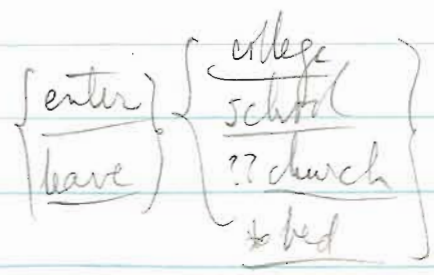 {enter leave} {college
school
??church
*bed}